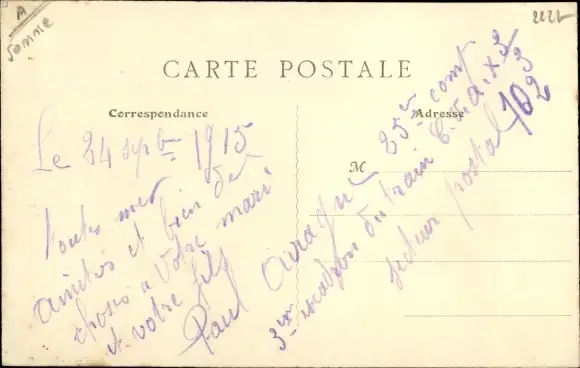 A
Somme
CARTE POSTALE
Correspondance
Adresse
M
Le 24 septbre 1915
Toutes mes
amitiés et bien des
choses a votre mari
et votre fils
Paul
25em comp
3em escadron du train
secteur postal 102